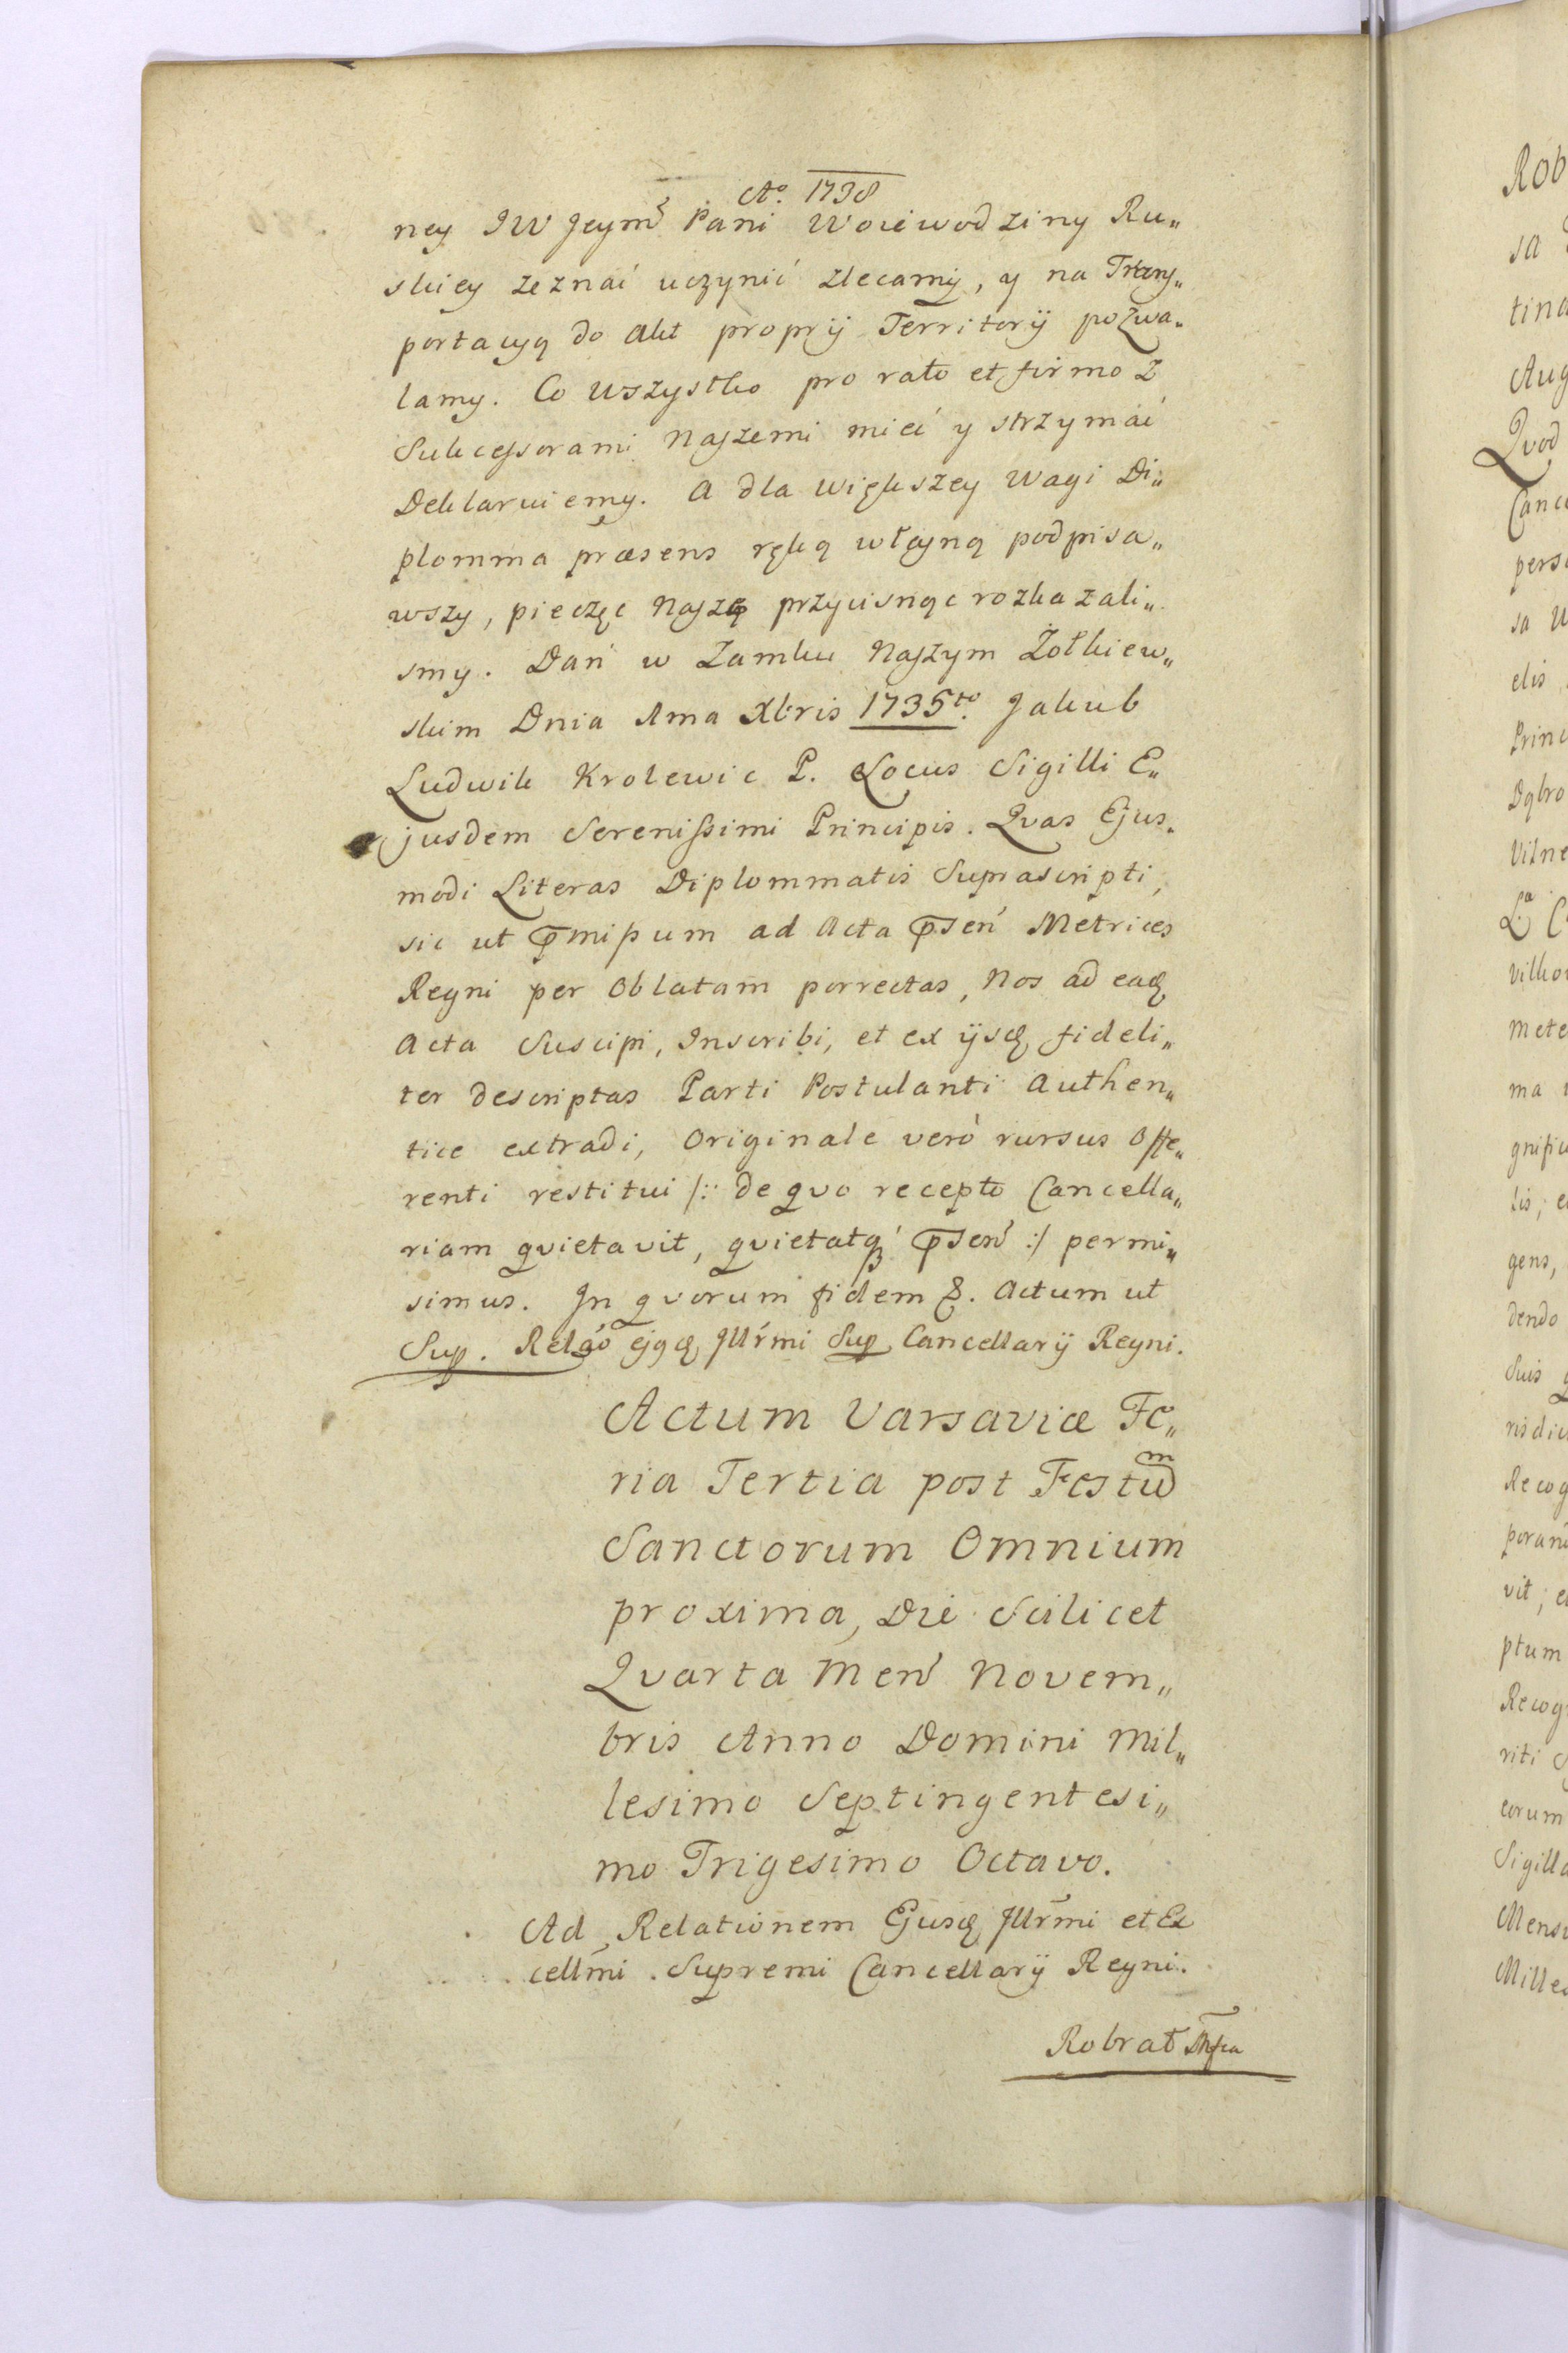 Aº. 1738
ney JW Jeym̃ Pani Woiewodziny Ru„
skiey zeznać uczynić zlecamy, y na Trans„
portacyą do Akt proprij Territorij pozwa„
lamy. Co wszystko pro rato et firmo z
Sukcessorami Naszemi mieć y strzymać
Deklaruiemy. A dla większey wagi Di„
plomma præsens ręką własną podpisa„
wszy, pieczęc Naszą przycisnąc rozkazali„
smy. Dań w Zamku Naszym Żołkiew„
skim Dnia 1ma Xbris 1735to. Jakub
Ludwik Krolewic P. Locus Sigilli E„
jusdem Serenissimi Principis. Qvas Ejus„
modi Literas Diplommatis Suprascripti,
sic ut p̅mißum ad Acta p̅sen̄ Metrices
Regni per Oblatam porrectas, Nos ad eađ
Acta Suscipi, Inscribi, et ex ijsđ fideli„
ter descriptas Parti Postulanti Authen„
tice extradi, Originale verò rursus Offe„
renti restitui /: de qvo recepto Cancella„
riam qvietavit, qvietatq́ p̅sen̄ :/ permi„
simus. In qvorum fidem &. Actum ut
Sup. Relãõ ejqđ Jllr̃mi Sup Cancellarij Regni.
Actum Varsaviæ Fe„
ria Tertia post Festũm
Sanctorum Omnium
proxima, Die Scilicet
Qvarta Men̄ Novem„
bris Anno Domini Mil„
lesimo Septingentesi„
mo Trigesimo Octavo.
Ad Relationem Ejusđ Jllr̃mi et Ex
cellm̃i Supremi Cancellarij Regni.
Robrat̃
Rob
sa
tina
Aug
Qvod
Canc
pers
sa
elis
Princ
Dąbro
Vilne
vilko
mete
ma
gnific
lis, e
gens,
dendo
Suis
risdic
Recog
poran
vit, e
ptum
Recog
riti
eorum
Sigilla
Mens
Milles